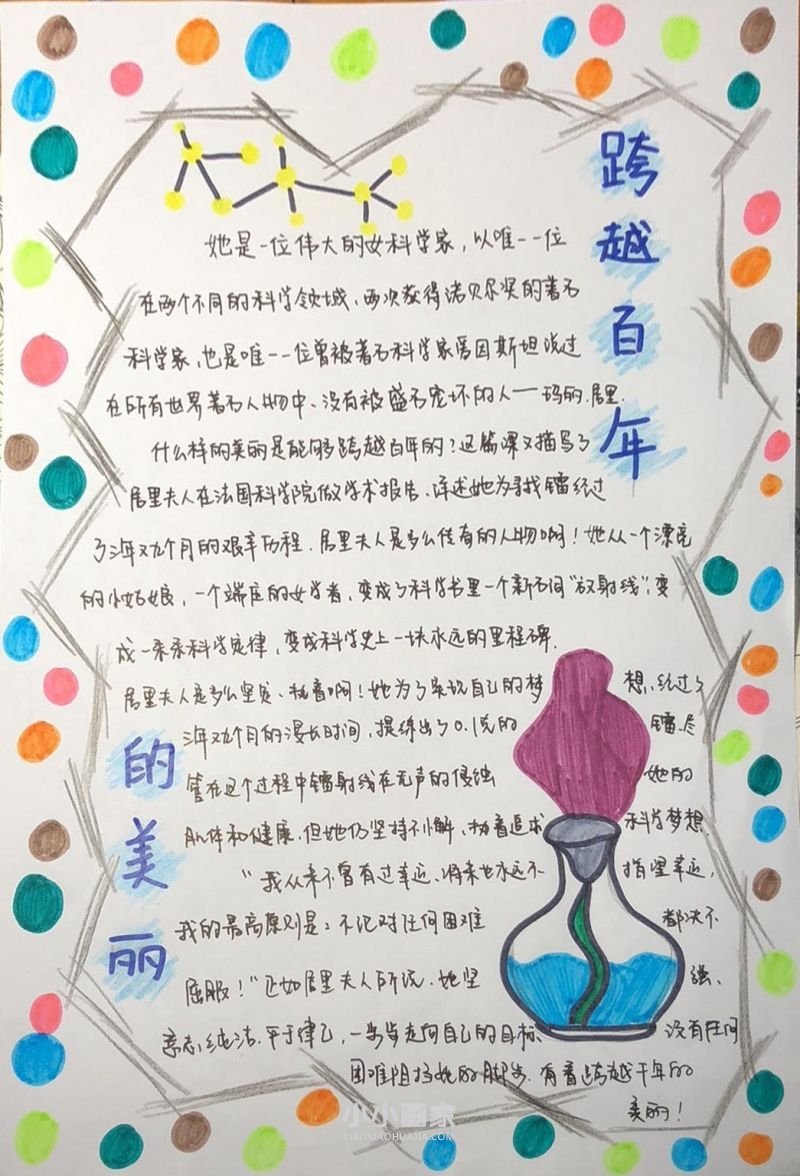 跨越百年
的美丽
她是一位伟大的女科学家，以唯一一位
在两个不同的科学领域、两次获得诺贝尔奖的著名
科学家，也是唯一一位曾被著名科学家爱因斯坦说过
在所有世界著名人物中、没有被盛名宠坏的人——玛丽.居里.
什么样的美丽是能够跨越百年的？这篇课文描写了
居里夫人在法国科学院做学术报告、详述她为寻找镭经过
了三年又九个月的艰辛历程.居里夫人是多么佳有的人物啊！她从一个漂亮
的小姑娘，一个端庄的女学者，变成了科学书里一个新名词“放射线”，变
成一条条科学定律，变成科学史上一块永远的里程碑.
居里夫人是多么坚定、执着啊！她为了实现自己的梦想、经过了
三年又九个月的漫长时间，提练出了0.1克的镭.尽
管在这个过程中镭射线在无声的侵蚀她的
肌体和健康.但她仍坚持不懈、执着追求科学梦想.
“我从来不曾有过幸运、将来也永远不指望幸运，
我的最高原则是：不论对任何困难都决不
屈服！”正如居里夫人所说.她坚强、
意志纯洁.平于律己，一步步走向自己的目标、没有任何
困难阻挡她的脚步.有着跨越千年的
美丽！
小小画家
XIAOXIAOHUAJIA.COM